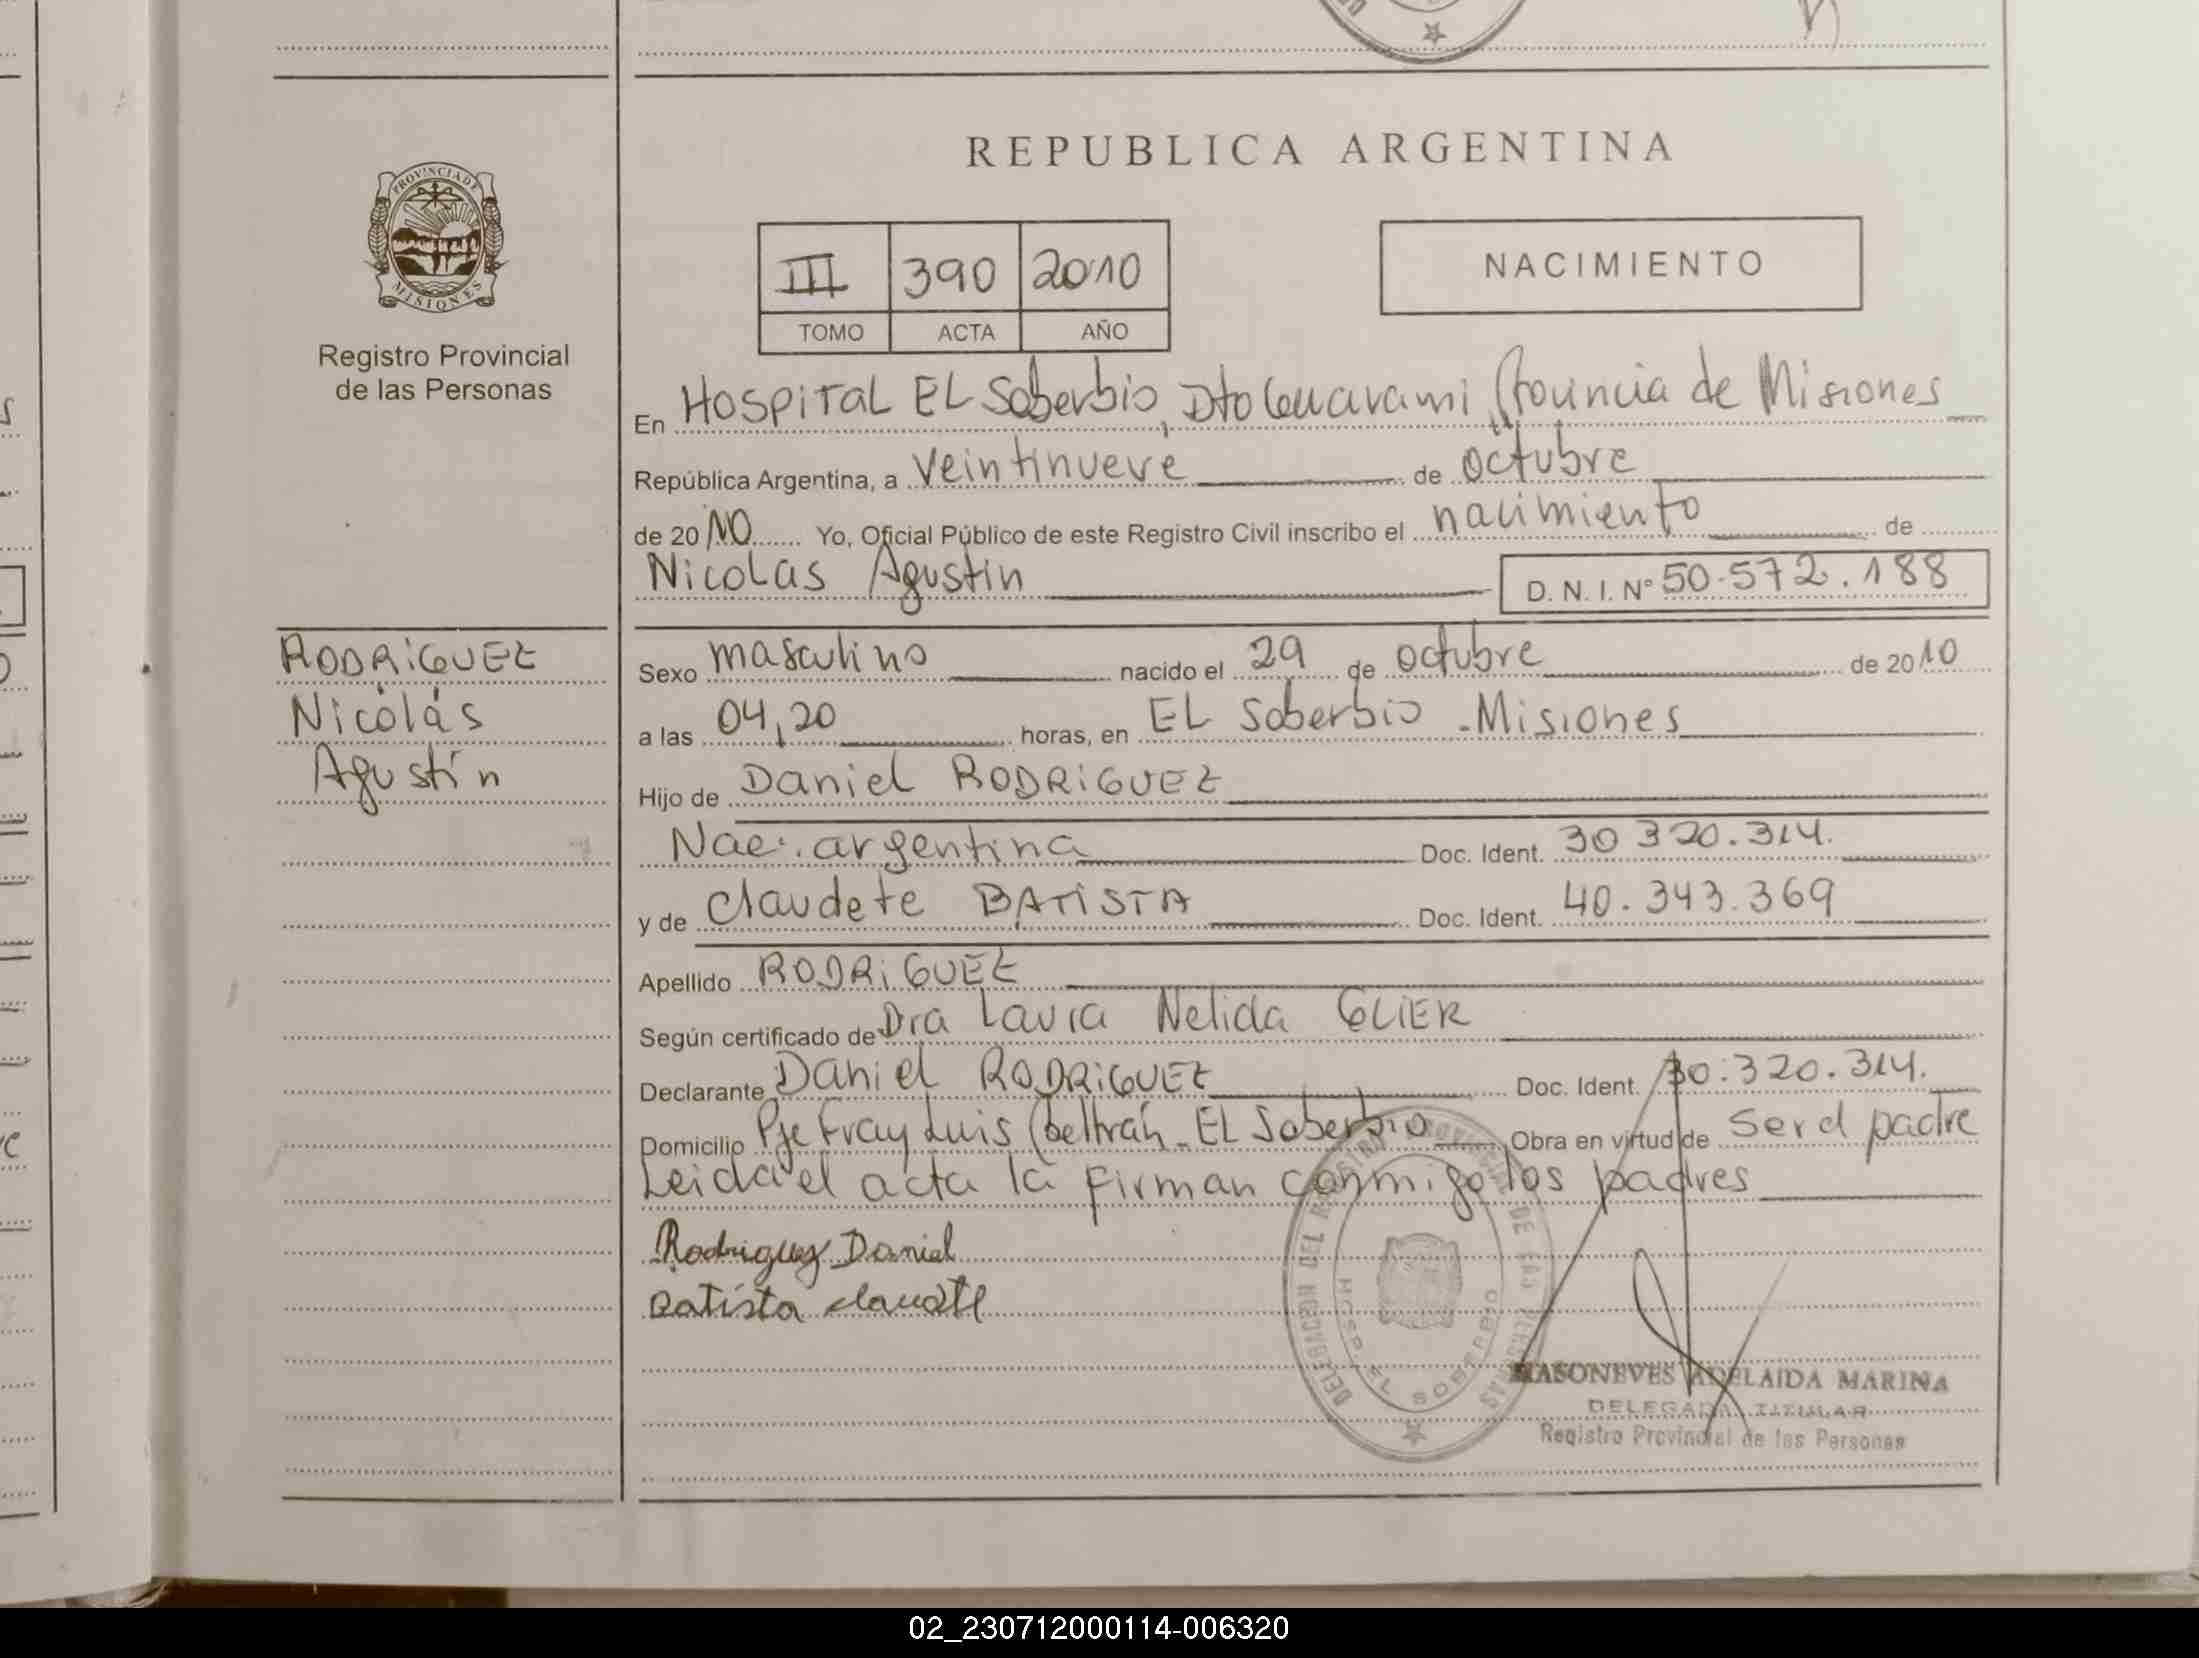 REPUBLICA ARGENTINA
PROVINCIA DE
MISIONES
Registro Provincial
de las Personas
III 390 2010
TOMO ACTA AÑO
NACIMIENTO
En Hospital EL Soberbio, Dto Guarami, Provincia de Misiones
República Argentina, a veintinueve de octubre
de 2010 Yo, Oficial Público de este Registro Civil inscribo el nacimiento de
Nicolas Agustin D. N. I. Nº 50.572.188
RODRIGUEZ
Nicolás
Agustín
Sexo masculino nacido el 29 de octubre de 2010
a las 04,20 horas, en EL Soberbio - Misiones
Hijo de Daniel RODRIGUEZ
Nac. argentina Doc. Ident. 30 320.314.
y de Claudete BATISTA Doc. Ident. 40.343.369
Apellido RODRIGUEZ
Según certificado de Dra Laura Nelida GLIER
Declarante Daniel RODRIGUEZ Doc. Ident. 30.320.314.
Domicilio Pje Fray Luis Beltrán - EL Soberbio Obra en virtud de ser el padre
Leida el acta la firman conmigo los padres
Rodriguez Daniel
Batista
DELEGACION DEL REGISTRO PROVINCIAL DE LAS PERSONAS
HOSP. EL SOBERBIO
MASONEVES ADELAIDA MARINA
DELEGADA TITULAR
Registro Provincial de las Personas
02_230712000114-006320